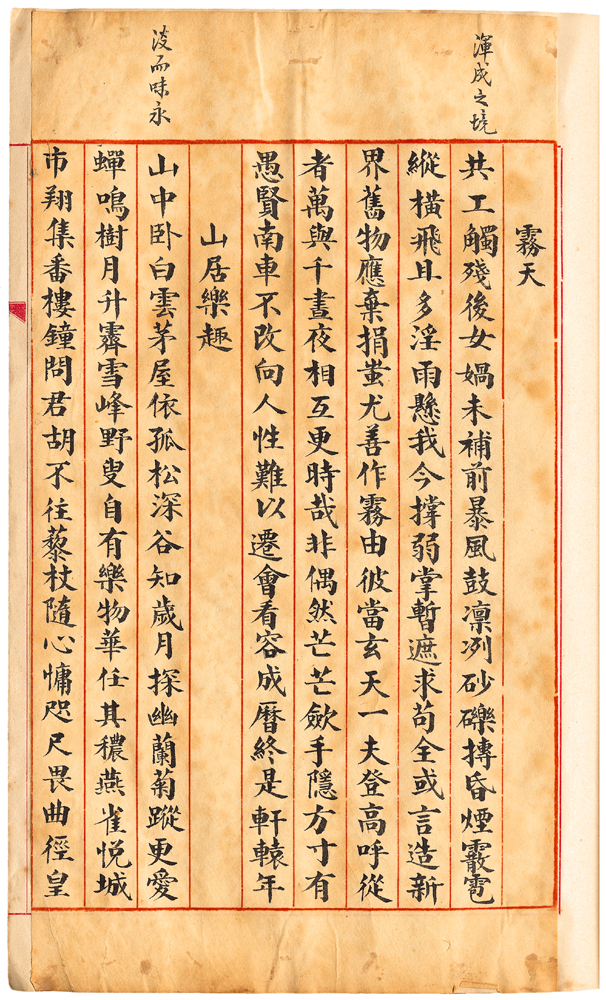 渾成之境
淡而味永
霧天
共工觸殘後女媧未補前暴風鼓凛冽砂礫摶昏煙霰雹
縱橫飛且多淫雨懸我今撐弱掌暫遮求苟全或言造新
界舊物應棄捐蚩尤善作霧由彼當玄天一夫登高呼從
者萬與千晝夜相互更時哉非偶然芒芒歛手隱方寸有
愚賢南車不改向人性難以遷會看容成曆終是軒轅年
山居樂趣
山中卧白雲茅屋依孤松深谷知歲月探幽蘭菊蹤更愛
蟬鳴樹月升霽雪峰野叟自有樂物華任其穠燕雀悦城
市翔集番樓鐘問君胡不往藜杖隨心慵咫尺畏曲徑皇